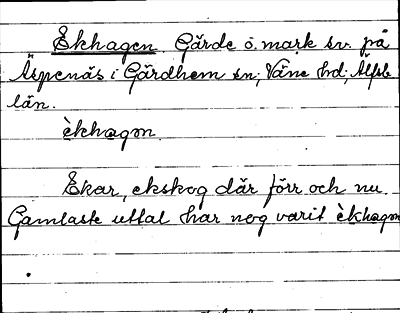 Ekhagen Gärde o. mark sv. på
Äspenäs i Gärdhem sn; Väne hd; Älfsb.
län.
èkhagɷn
Ekar, ekskog där förr och nu.
Gamlaste uttal har nog varit èkhagɷn